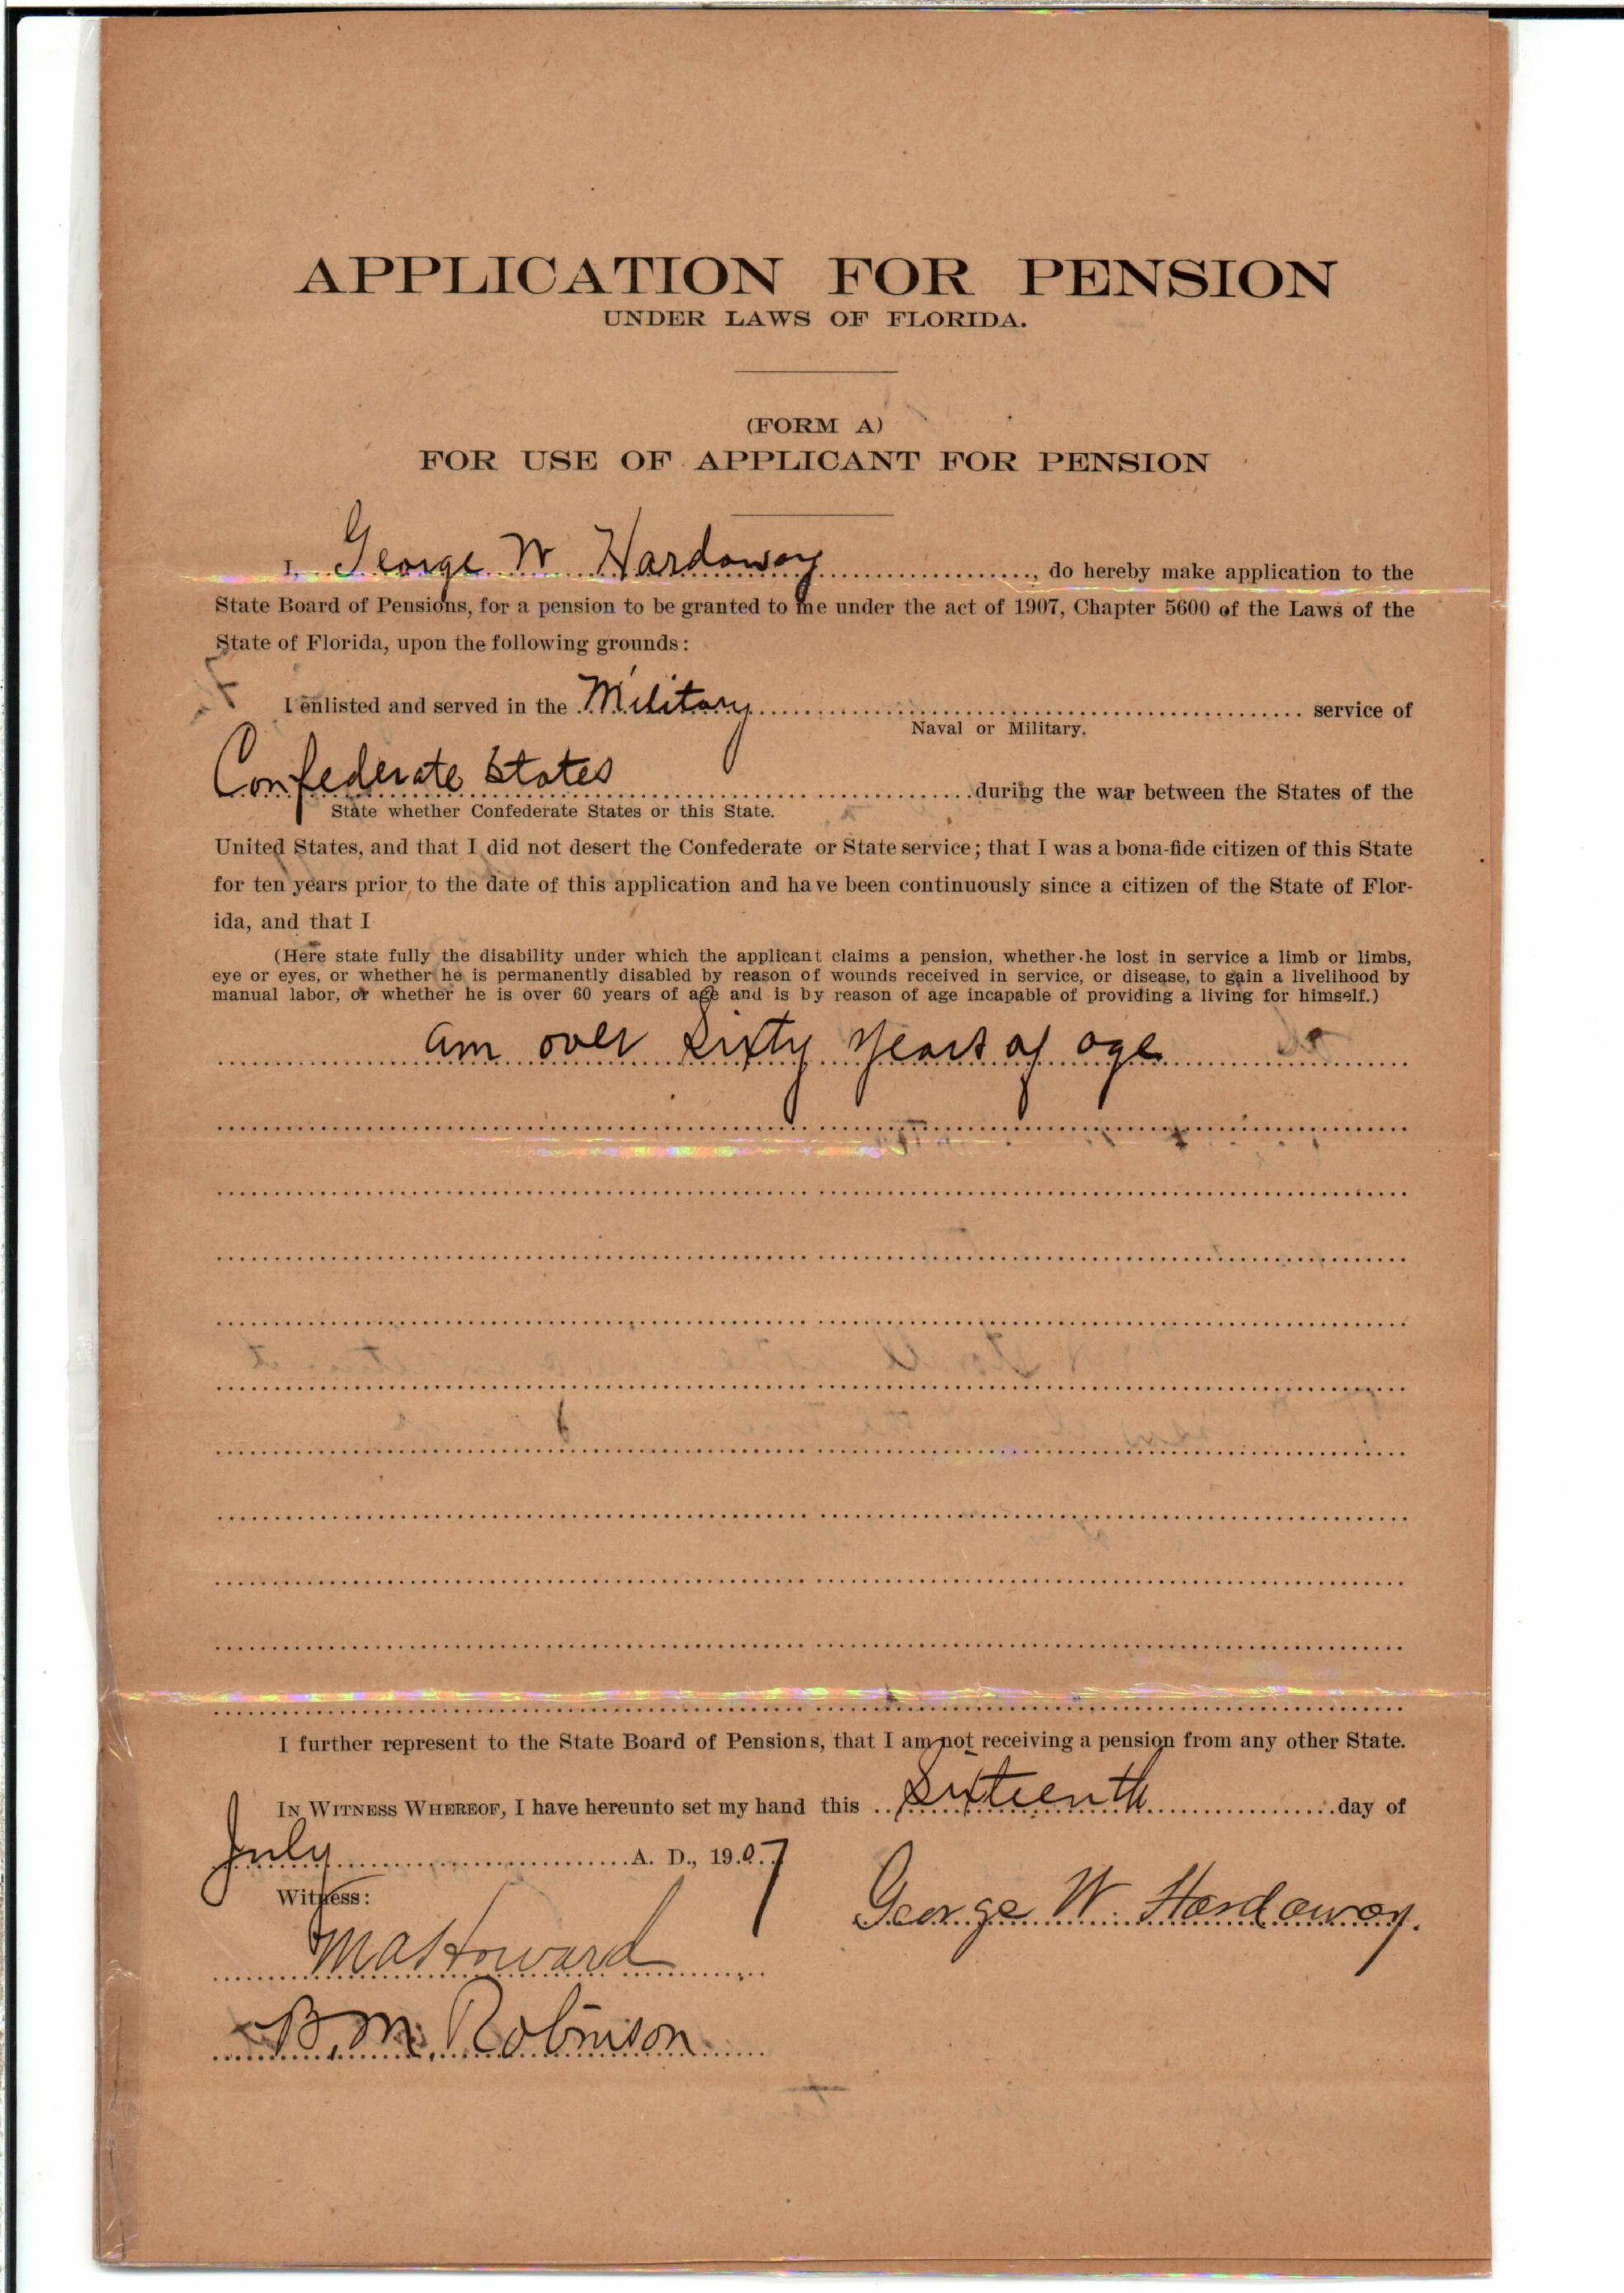 APPLICATION FOR PENSION
UNDER LAWS OF FLORIDA.
(FORM A)
FOR USE OF APPLICANT FOR PENSION
I, George W Hardaway, do hereby make application to the
State Board of Pensions, for a pension to be granted to me under the act of 1907, Chapter 5600 of the Laws of the
State of Florida, upon the following grounds:
I enlisted and served in the Military service of
Naval or Military.
Confederate States during the war between the States of the
State whether Confederate States or this State.
United States, and that I did not desert the Confederate or State service; that I was a bona-fide citizen of this State
for ten years prior to the date of this application and have been continuously since a citizen of the State of Flor-
ida, and that I
(Here state fully the disability under which the applicant claims a pension, whether he lost in service a limb or limbs,
eye or eyes, or whether he is permanently disabled by reason of wounds received in service, or disease, to gain a livelihood by
manual labor, or whether he is over 60 years of age and is by reason of age incapable of providing a living for himself.)
am over sixty years of age
I further represent to the State Board of Pensions, that I am not receiving a pension from any other State.
IN WITNESS WHEREOF, I have hereunto set my hand this Sixteenth day of
July A. D., 1907
Witness:
George W. Hardaway.
M A Howard
B. M. Robinson